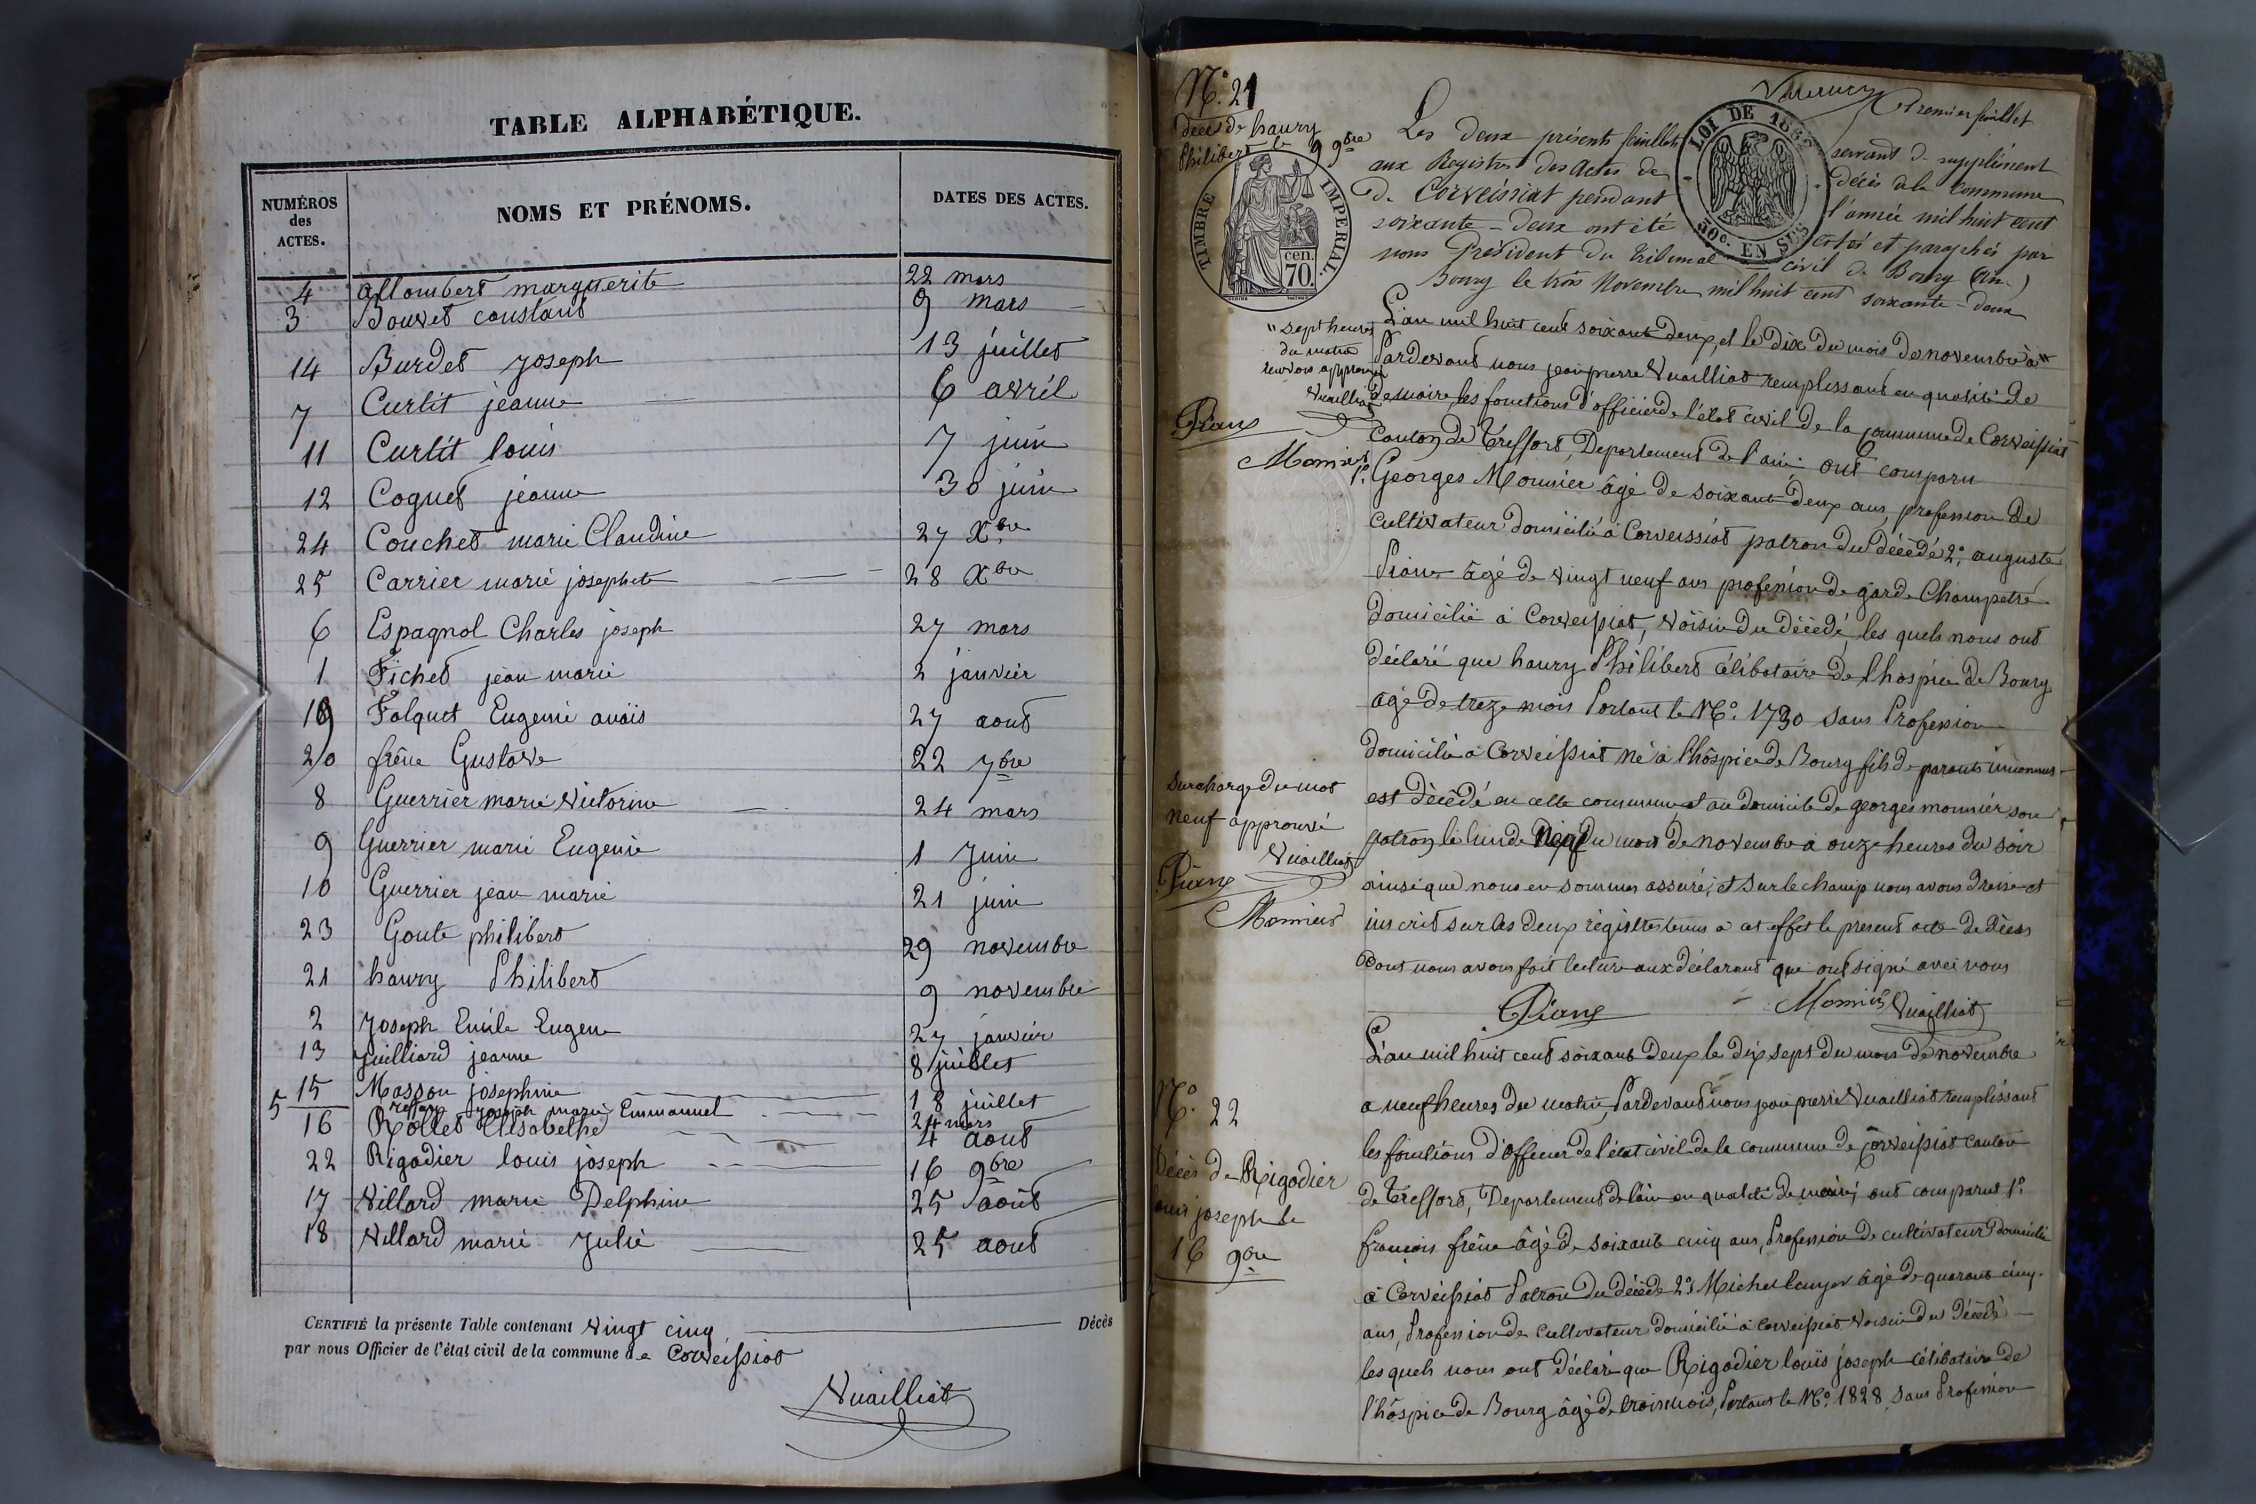 TABLE ALPHABÉTIQUE.
NUMÉROS des ACTES. NOMS ET PRÉNOMS. DATES DES ACTES.
4 Allombert marguerite 22 mars
3 Bouvet constant 9 mars
14 Burdet joseph 13 juillet
7 Curtit jeanne 6 avril
11 Curtit louis 7 juin
12 Coguet jeanne 30 juin
24 Couchet marie Claudine 27 Xbre
25 Carrier marie josephete 28 Xbre
6 Espagnol Charles joseph 27 mars
1 Fichet jean marie 2 janvier
19 Falquet Eugenie anaïs 27 aout
20 frêne Gustave 22 7bre
8 Guerrier marie Victorine 24 mars
9 Guerrier marie Eugenie 1 juin
10 Guerrier jean marie 21 juin
23 Goute philibert 29 novembre
21 haury Philibert 9 novembre
2 Joseph Emile Eugene 27 janvier
13 Juilliard jeanne 8 juillet
15 Masson josephine 18 juillet
5 joseph marie Emmanuel 24 mars
16 Rollet Elisabethe 4 aout
22 Rigadier louis joseph 16 9bre
17 Villard marie Delphine 25 août
18 Villard marie Julie 25 aout
CERTIFIÉ la présente Table contenant Vingt cinq Décès
par nous Officier de l'état civil de la commune de Corveissiat
Vuailliat
No. 21
décès de haury
Philibert le 9 9bre
TIMBRE IMPERIAL.
70. cen.
LOI DE 1862
50c. EN SUS
Premier feuillet
Les deux présents feuillets servant de supplément
aux Registres des Actes de décès de la Commune
de Corveissiat pendant l'année mil huit cent
soixante-deux ont été cotés et paraphés par
nous Président du Tribunal civil de Bourg (Ain.)
Bourg le trois Novembre mil huit cent soixante-deux
L'an mil huit cent soixante deux, et le dix du mois de novembre à "
" sept heures
du matin
renvois approuvé
Vuailliat
Piany
Monnier
Pardevant nous jean pierre Vuailliat remplissant en qualité de
de maire, les fonctions d'officier de l'état civil de la commune de Corveissiat
Canton de Treffort, Departement de l'ain, ont comparu
1o. Georges Monnier âgé de soixante deux ans, profession de
Cultivateur domicilié à Corveissiat patron du décédé 2o. auguste
Piany âgé de vingt neuf ans profession de garde Champetre
domicilié à Corveissiat, Voisin du Décédé les quels nous ont
déclaré que haury Philibert célibataire de l'hospice de Bourg
agé de treze mois Portant le No. 1730 sans Profession
domicilié à Corveissiat né à l'hôspice de Bourg fils de parents inconnus
est dècèdé en cette commune et au domicile de georges monnier son
patron le lunde neuf du mois de novembre à onze heures du soir
ainsi que nous en sommes assuré; et sur le champ nous avons dressé et
inscrit sur les deux régistres tenus à cet effet le present acte de dècès
dont nous avons fait lecture aux déclarant qui ont signé avec nous
Surcharge du mot
neuf approuvé
Vuailliat
Piany
Monnier
Piany Monnier Vuailliat
No. 22
Décès de Rigadier
louis joseph le
16 9bre
L'an mil huit cent soixante deux le dix sept du mois de novembre
a neuf heures du matin, Pardevant nous jean pierre Vuailliat remplissant
les fonctions d'officier de l'état civil de la commune de Corveissiat canton
de Treffort, Departement de l'ain en qualité de maire; ont comparut 1o.
françois frêne âgé de soixante cinq ans, Profession de cultivateur domicilié
à Corveissiat Patron du décédé 2o. Michel âgé de quarante cinq
ans, Profession de cultivateur domicilié à Corveissiat Voisin du Décédé
les quels nous ont déclaré que Rigadier louis joseph célibataire de
l'hôspice de Bourg âgé de trois mois, Portant le No. 1828, sans Profession